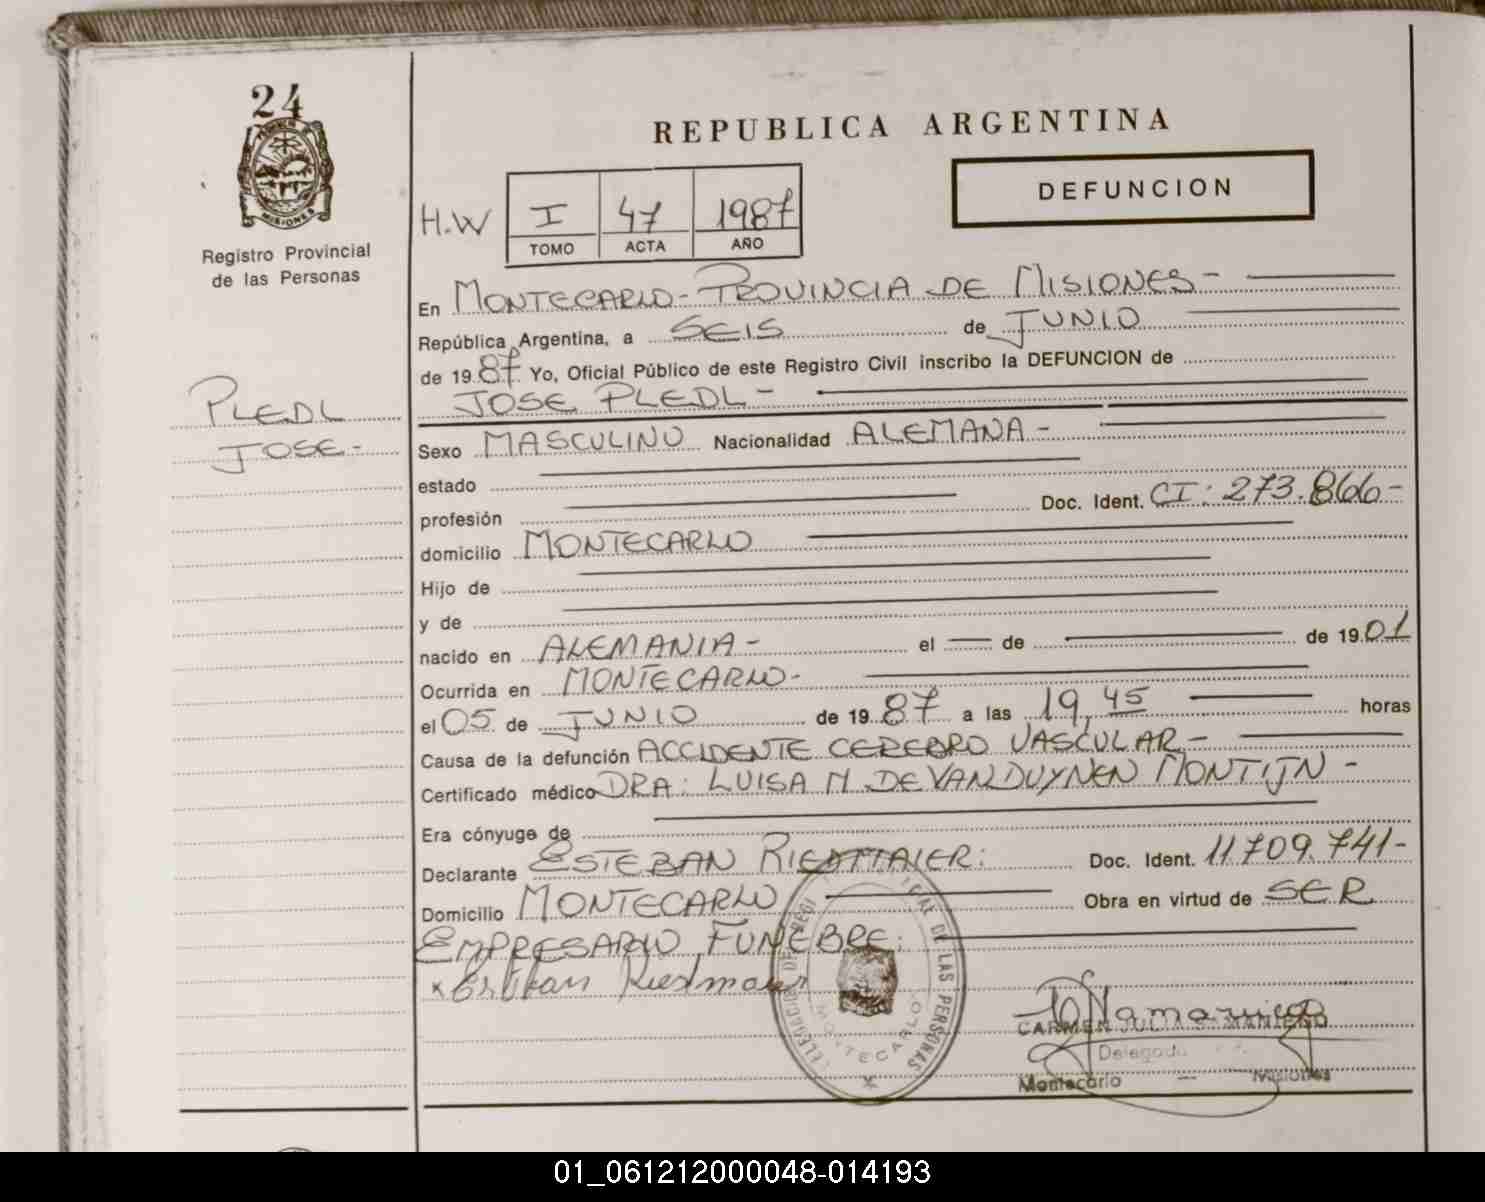 24
MISIONES
Registro Provincial
de las Personas
REPUBLICA ARGENTINA
DEFUNCION
H.W I 47 1987
TOMO ACTA AÑO
En MONTECARLO - PROVINCIA DE MISIONES -
República Argentina, a SEIS de JUNIO
de 1987 Yo, Oficial Público de este Registro Civil inscribo la DEFUNCION de
PLEDL
JOSE -
JOSE PLEDL -
Sexo MASCULINO Nacionalidad ALEMANA -
estado
profesión Doc. Ident. CI: 273.866 -
domicilio MONTECARLO
Hijo de
y de
nacido en ALEMANIA - el de de 1901
Ocurrida en MONTECARLO -
el 05 de JUNIO de 1987 a las 19,45 horas
Causa de la defunción ACCIDENTE CEREBRO VASCULAR -
Certificado médico DRA: LUISA M. DE VANDUYNEN MONTIJN -
Era cónyuge de
Declarante ESTEBAN RIEDMAIER: Doc. Ident. 11709.741 -
Domicilio MONTECARLO Obra en virtud de SER
EMPRESARIO FUNEBRE:
x Esteban Riedmaier
DE LAS PERSONAS
MONTECARLO
CARMEN
Delegada
Montecarlo — Misiones
01_061212000048-014193